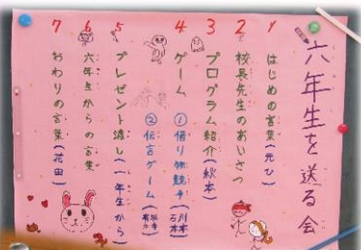 六年生を送る会
1 はじめの言葉
2 校長先生のあいさつ
3 プログラム紹介(秋本)
4 ゲーム ①借り物競争
②伝言ゲーム
5 プレゼント渡し(一年生から)
6 六年生からの言葉
7 おわりの言葉(花田)